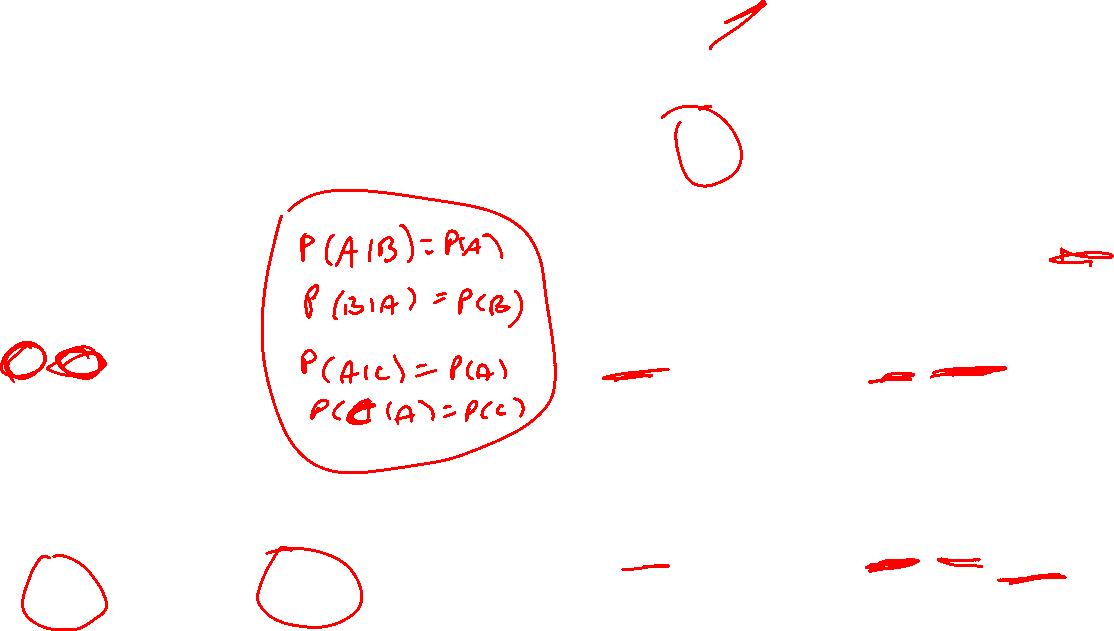 P(A|B)=P(A)
P(B|A)=P(B)
P(A|C)=P(A)
P(C|A)=P(C)